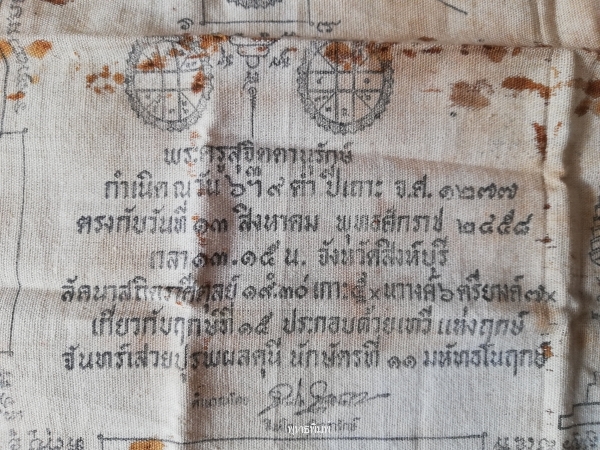 พระครูสุจิตตานุรักษ์
กำเนิด ณ วัน ๖ ๓ ๙ ค่ำ ปีเถาะ จ.ศ. ๑๒๗๗
ตรงกับวันที่ ๑๓ สิงหาคม พุทธศักราช ๒๔๕๘
เวลา ๑๓.๑๕ น. จังหวัดสิงห์บุรี
ลัคนาสถิตราศีตุลย์ ๑๙.๓๐ เกาะ ๕x นวางค์ ๖ ตรียางค์ ๗x
เกี่ยวกับฤกษ์ที่ ๑๕ ประกอบด้วยเทวีแห่งฤกษ์
จันทร์เสวยปุรพผลคุนี นักษัตรที่ ๑๑ มหัทธโนฤกษ์
พุทธพิมพ์